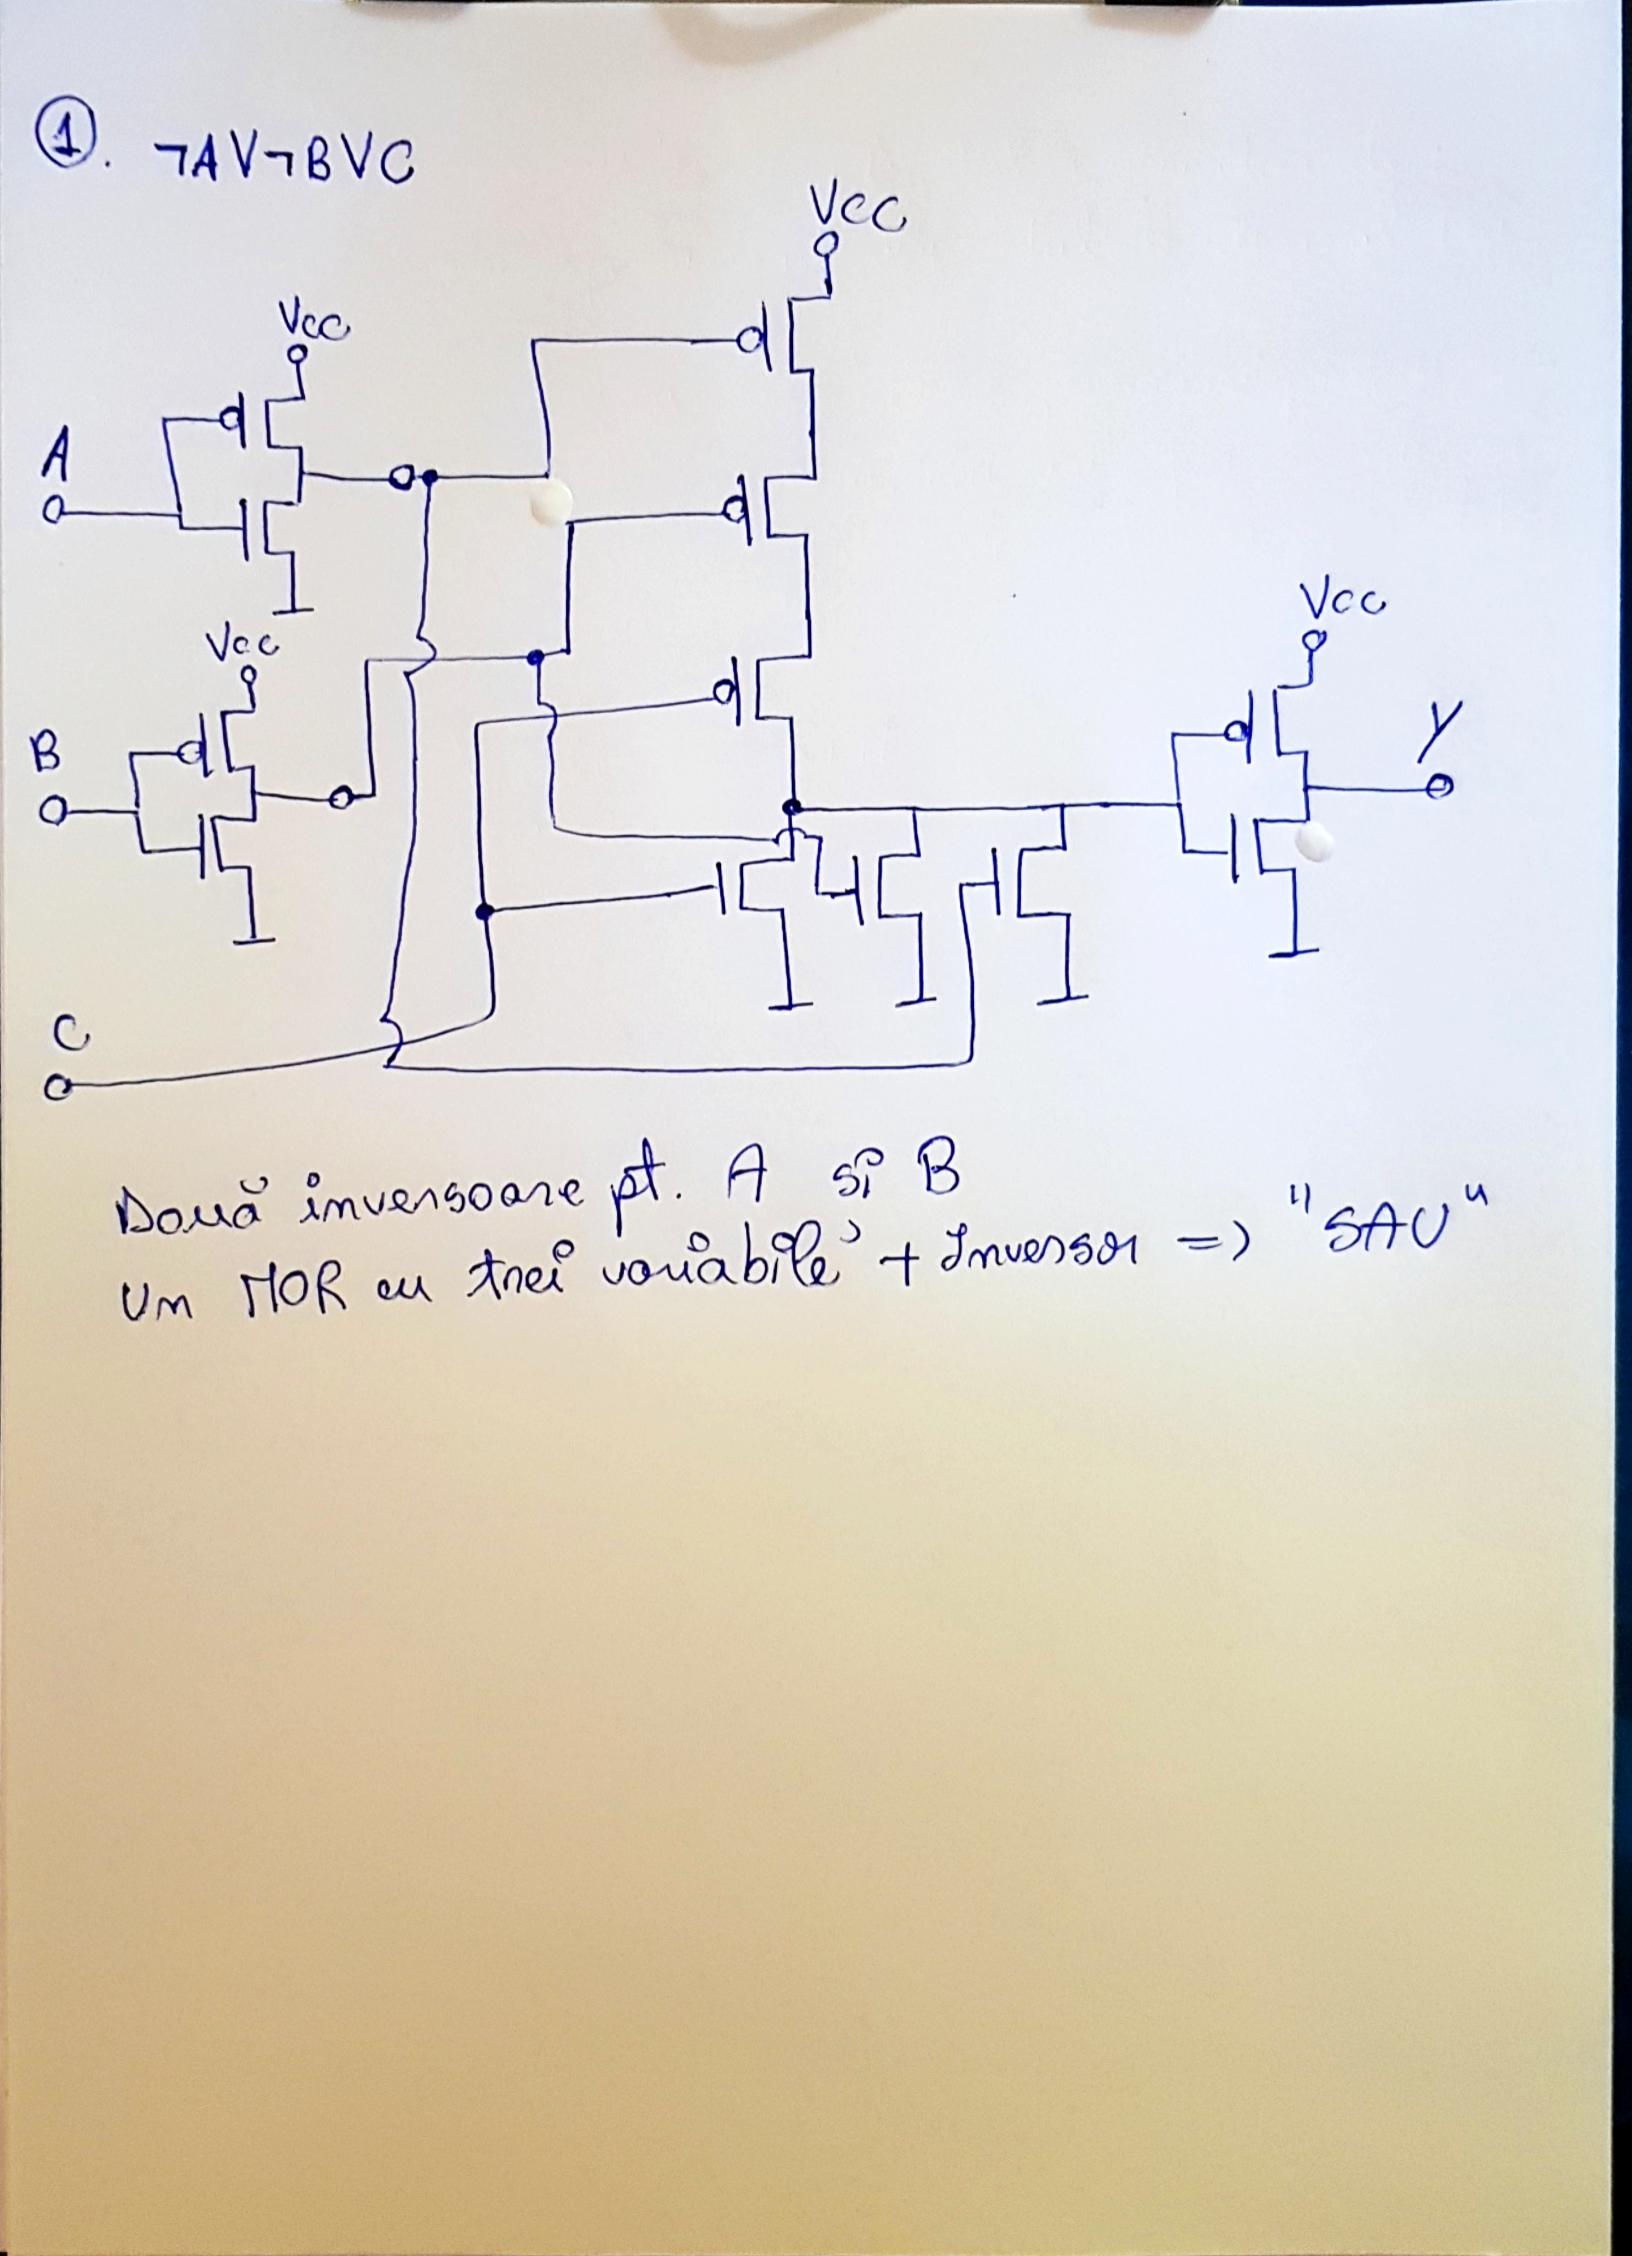 1. ¬A V ¬B V C
Vcc
Vcc
A
Vcc
Vcc
B
Y
C
Două inversoare pt. A si B
Un NOR cu trei variabile + Inversor => "SAU"